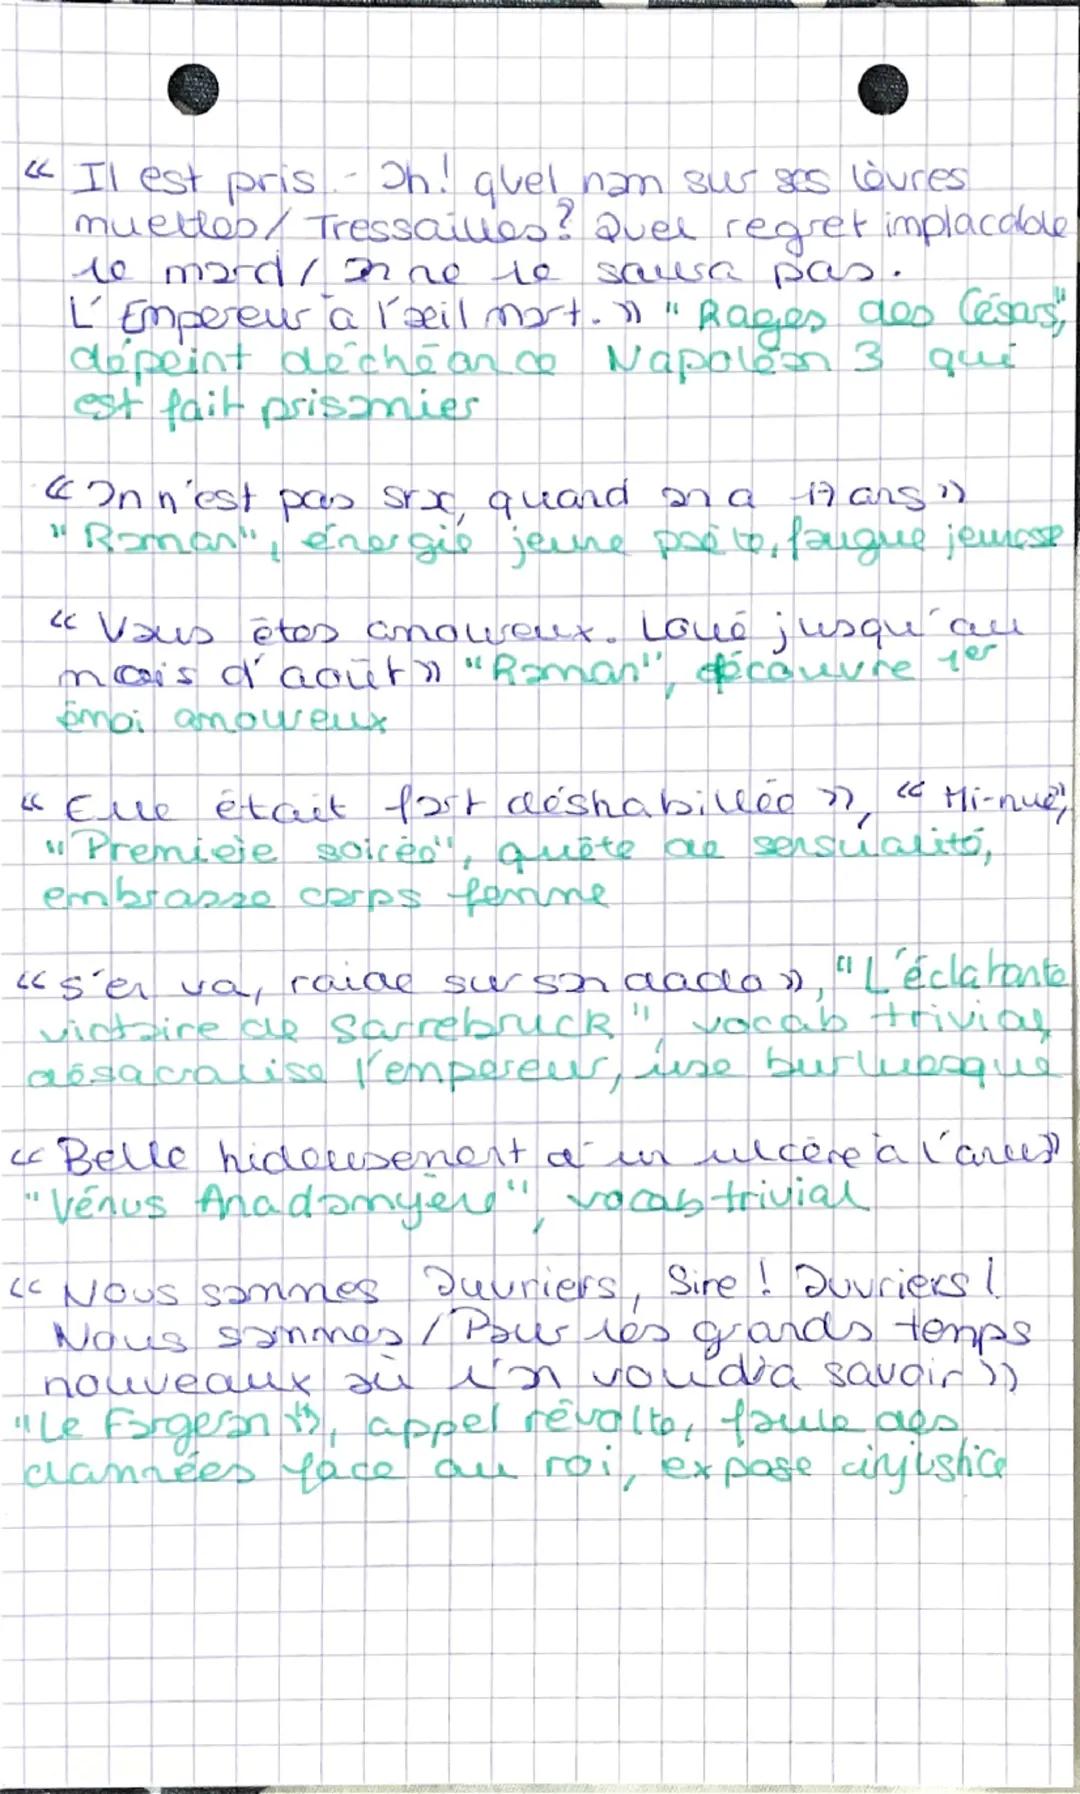 « Il est pris. - Oh! quel nom sur ses lèvres
muettes / Tressailles? Quel regret implacable
le mord / On ne le saura pas.
L'Empereur a l'œil mort. » "Rages des Césars",
dépeint déchéance Napoléon 3 qui
est fait prisonnier
« On n'est pas srx, quand on a 17 ans »
"Roman", énergie jeune poète, fougue jeunesse
« Vous êtes amoureux. Loué jusqu'au
mois d'août » "Roman", découvre 1er
émoi amoureux
« Elle était fort déshabillée », « Mi-nue »,
"Première soirée", quête de sensualité,
embrasse corps femme
« s'en va, raide sur son dada », "L'éclatante
victoire de Sarrebruck", vocab trivial,
désacralise l'empereur, use burlesque
« Belle hideusement d'un ulcère à l'anus »
"Vénus Anadomyène", vocab trivial
« Nous sommes Ouvriers, Sire! Ouvriers!
Nous sommes / Pour les grands temps
nouveaux où l'on voudra savoir »
"Le Forgeron", appel révolte, foule des
damnées face au roi, expose injustice